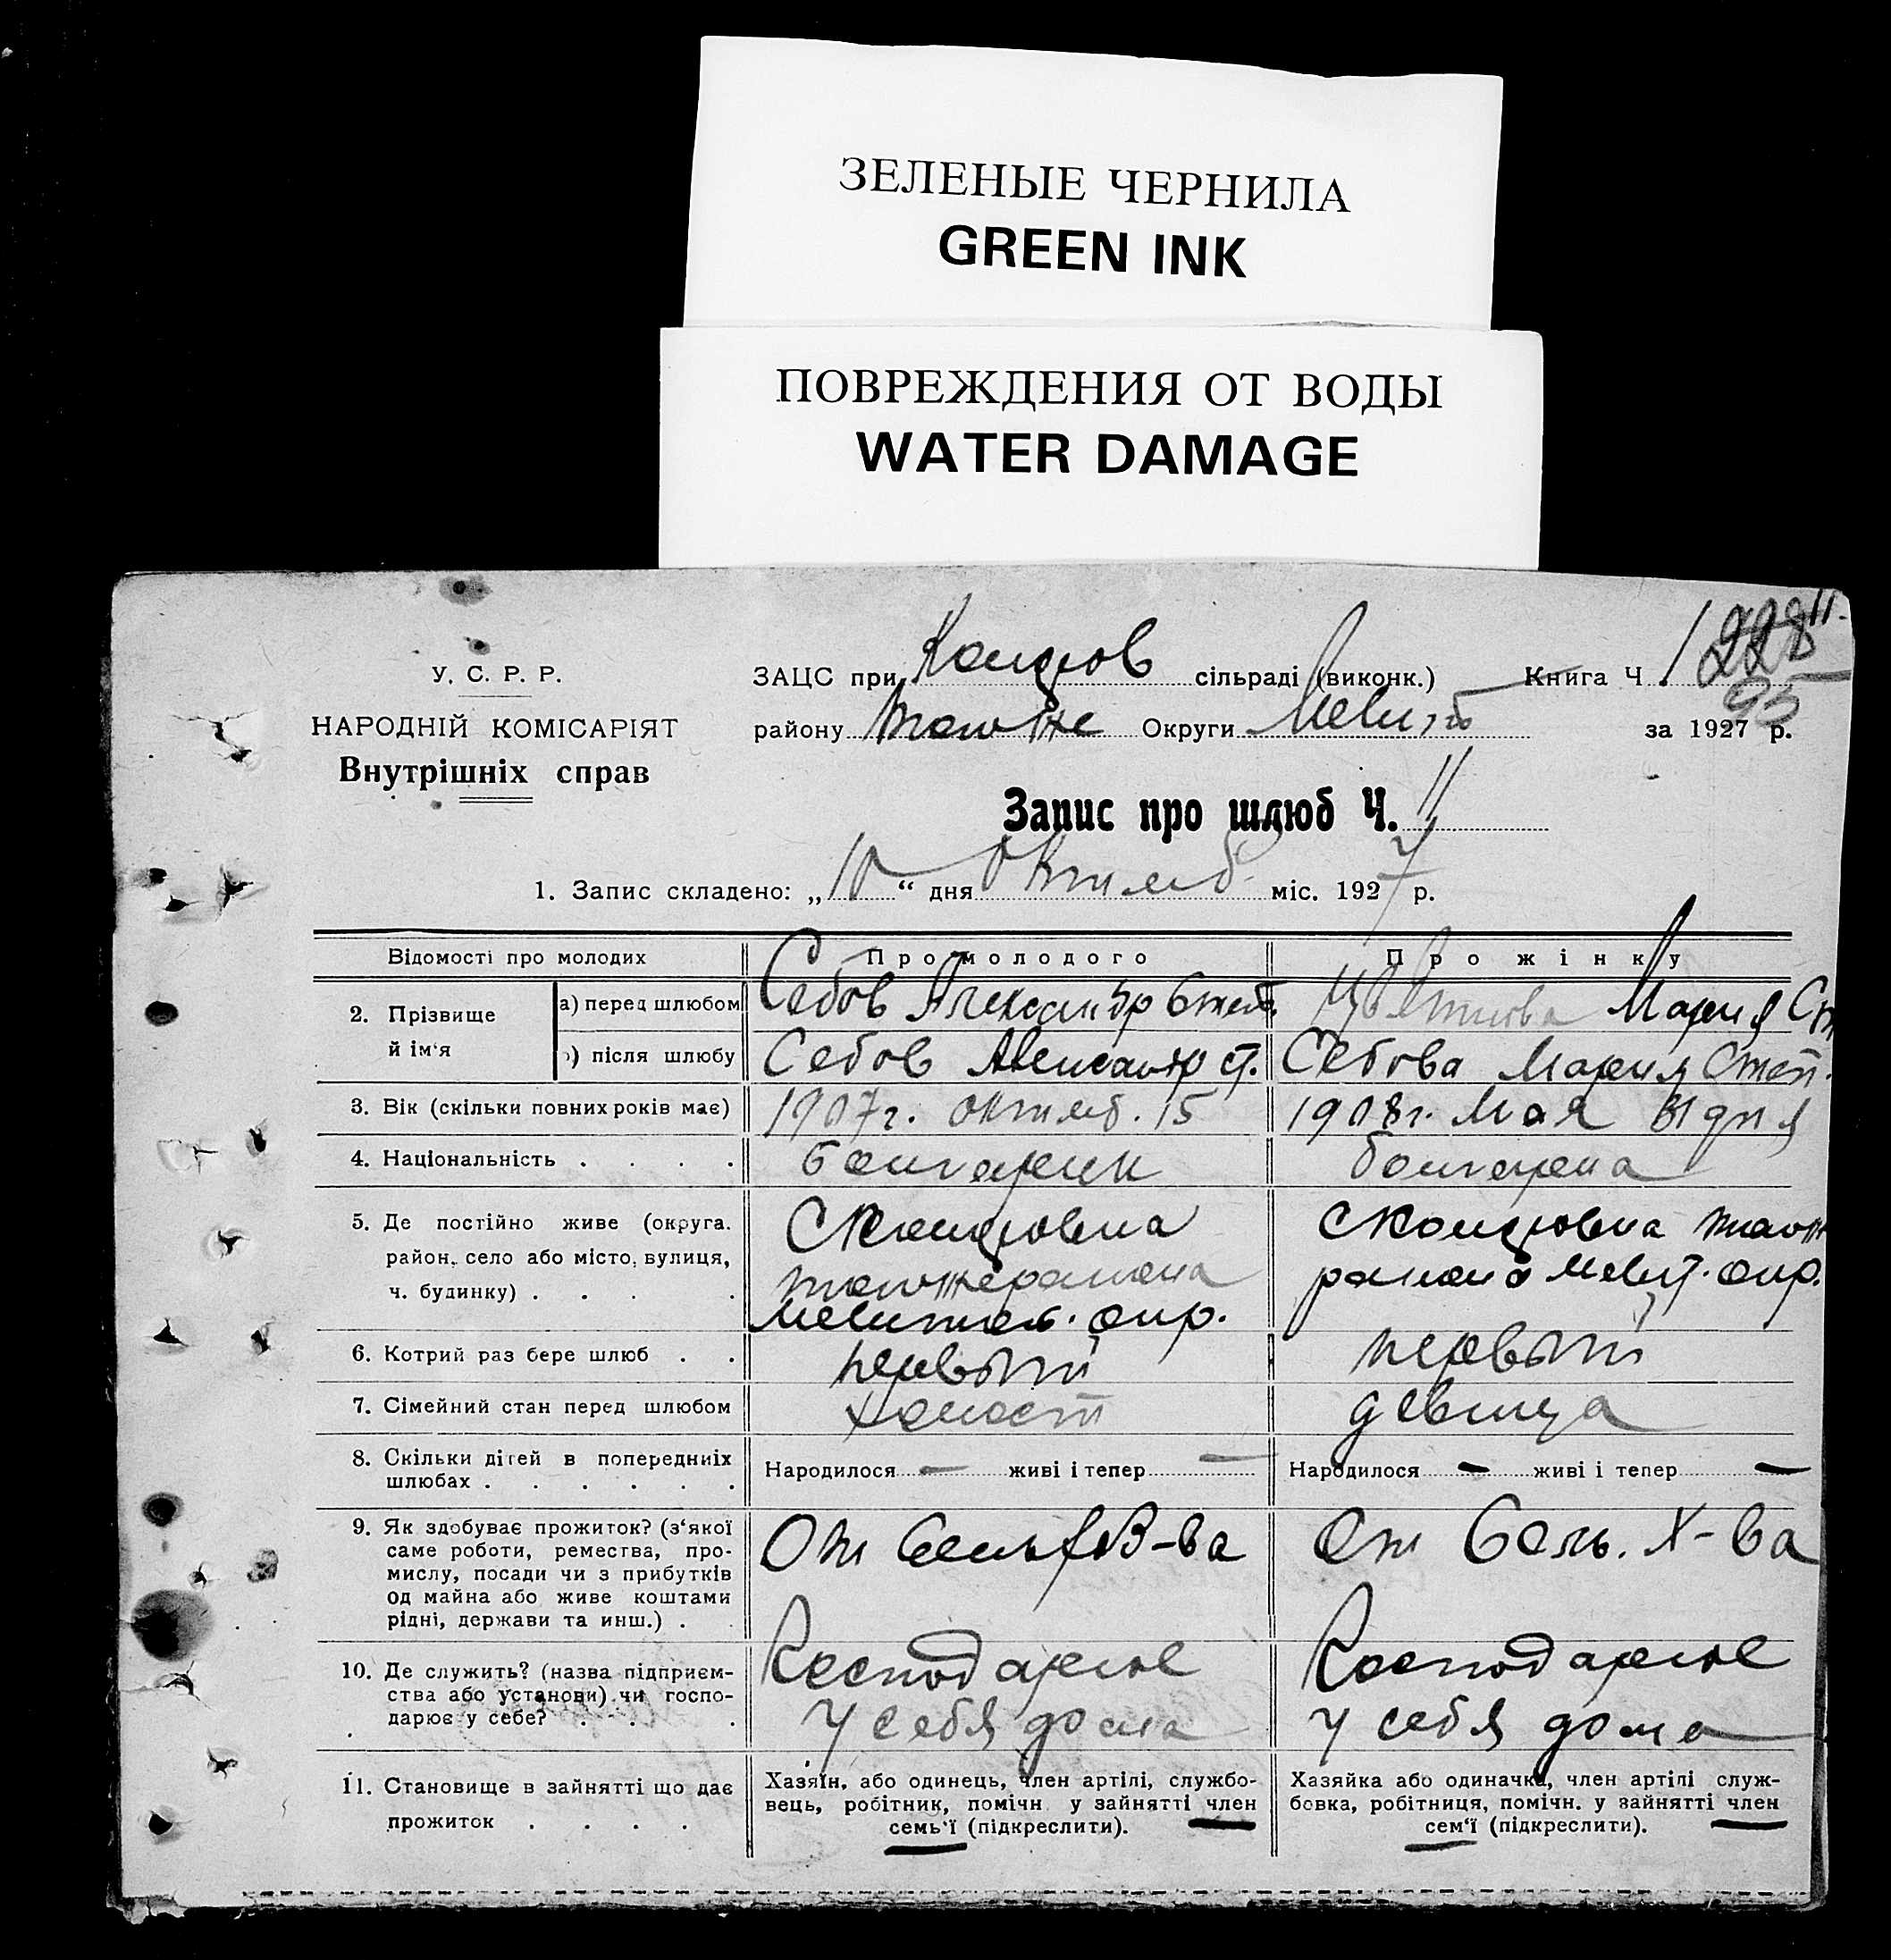 ЗЕЛЕНЫЕ ЧЕРНИЛА
GREEN INK
ПОВРЕЖДЕНИЯ ОТ ВОДЫ
WATER DAMAGE
У. С. Р. Р.
НАРОДНІЙ КОМІСАРІЯТ
Внутрішніх справ
ЗАЦС при сільраді (виконк.) Книга Ч. 1
району Округи Мелит за 1927 р.
Запис про шлюб Ч. 11
1. Запис складено: „10“ дня октяб міс. 1927 р.
Відомості про молодих Про молодого Про жінку
2. Прізвище й ім'я
а) перед шлюбом Себов Александр Степ. Мария Ст
б) після шлюбу Себов Александр Ст. Себова Мария Степ.
3. Вік (скільки повних років має) 1907 г. октяб. 15 1908 г. мая дня
4. Національність . . . . болгарин болгарка
5. Де постійно живе (округа. район, село або місто, вулиця, ч. будинку) . . . .
Мелитоп. окр. района Мелит. окр.
6. Котрий раз бере шлюб . . первый первый
7. Сімейний стан перед шлюбом холост девица
8. Скільки дітей в попередніх шлюбах . . . . . .
Народилося — живі і тепер — Народилося — живі і тепер —
9. Як здобуває прожиток? (з'якої
саме роботи, ремества, про-
мислу, посади чи з прибутків
од майна або живе коштами
рідні, держави та инш.) .
От Сель. Х-ва
10. Де служить? (назва підприєм-
ства або установи) чи госпо-
дарює у себе? . . . .
Господарює Господарює
у себя дома у себя дома
11. Становище в зайнятті що дає
прожиток . . . .
Хазяїн, або одинець, член артілі, службо-
вець, робітник, помічн у зайнятті член
семь'ї (підкреслити).
Хазяйка або одиначка, член артілі служ-
бовка, робітниця, помічн. у зайнятті член
сем'ї (підкреслити).